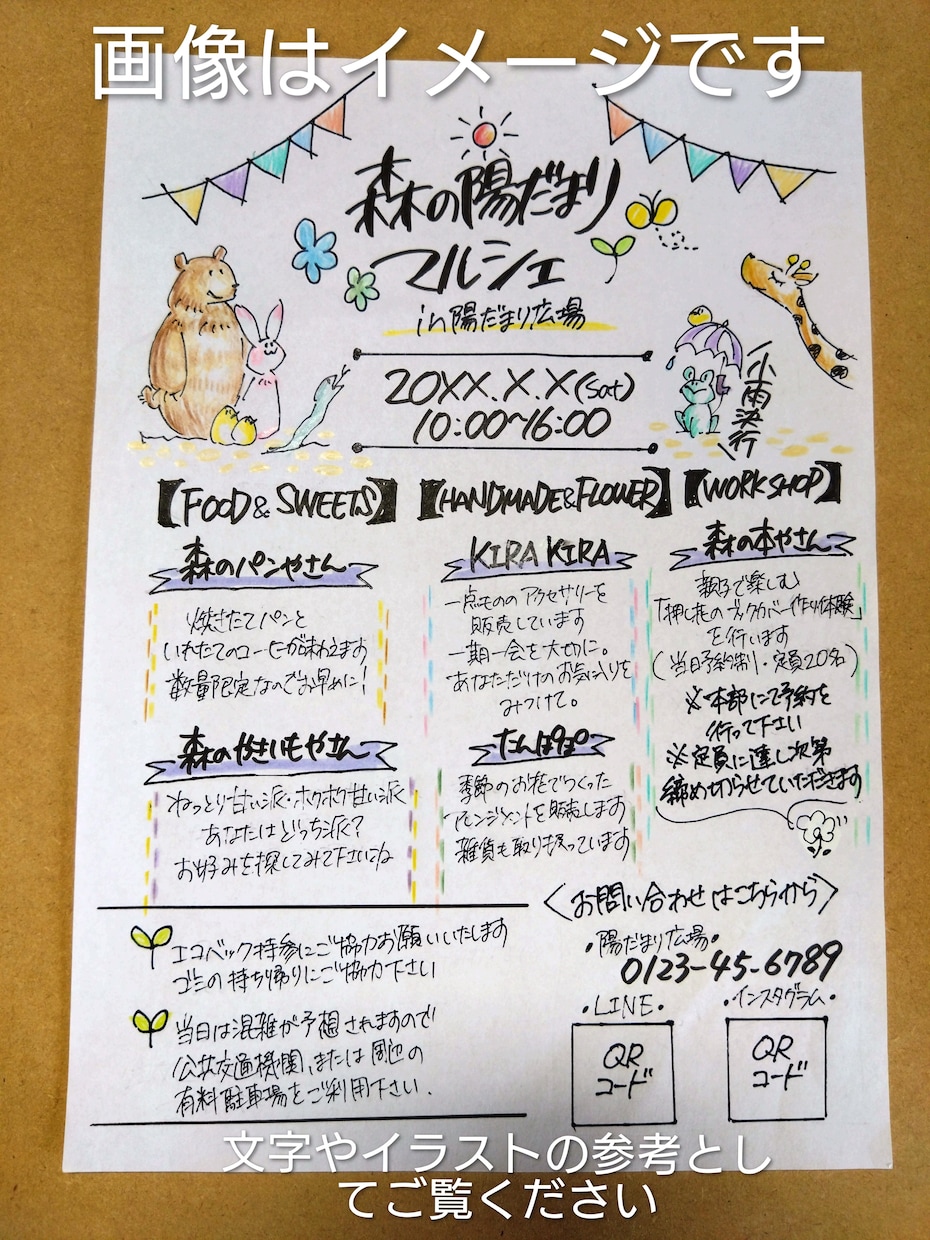 画像はイメージです
森の陽だまり
マルシェ
in陽だまり広場
20XX.X.X(Sat)
10:00~16:00
小雨決行
【FOOD & SWEETS】
森のパンやさん
焼きたてパンと
いれたてのコーヒーが味わえます
数量限定なのでお早めに!
森のやきいもやさん
ねっとり甘い派・ホクホク甘い派
あなたはどっち派?
お好みを探してみて下さいね
【HANDMADE&FLOWER】
KIRA KIRA
一点もののアクセサリーを
販売しています
一期一会を大切に。
あなただけのお気に入りを
みつけて。
たんぽぽ
季節のお花でつくった
アレンジメントを販売します
雑貨も取り扱っています
【WORKSHOP】
森の本やさん
親子で楽しむ
「押し花のブックカバー作り体験」
を行います
(当日予約制・定員20名)
※本部にて予約を
行って下さい
※定員に達し次第
締め切らせていただきます
エコバック持参にご協力お願いいたします
ゴミの持ち帰りにご協力下さい
当日は混雑が予想されますので
公共交通機関、または周辺の
有料駐車場をご利用下さい.
<お問い合わせはこちらから>
・陽だまり広場・
0123-45-6789
・LINE・
・インスタグラム・
QR
コード
QR
コード
文字やイラストの参考とし
てご覧ください